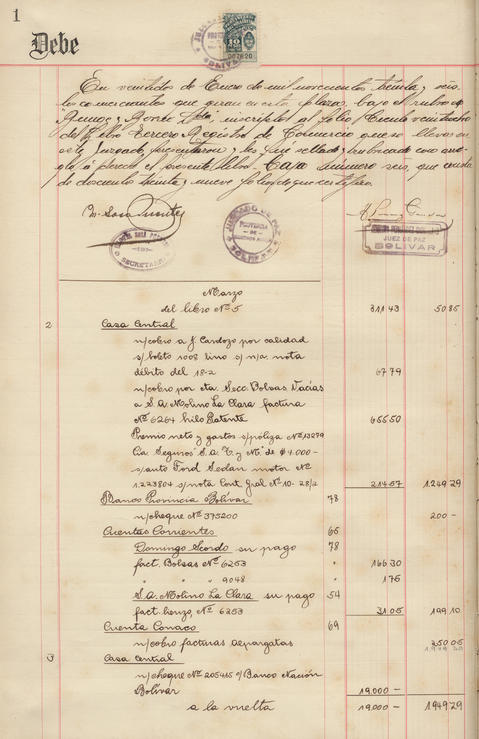 1
Debe
En veintidos de Enero de mil novecientos treinta y seis,
los comerciantes que giran en esta plaza, bajo el rubro de
Ramos y Monte Ltda, inscriptos al folio Ciento veintiocho
del Libro Tercero Registro de Comercio que se lleva en
este Juzgado, presentaron, les fué sellado y rubricado con arre-
glo á percal el presente libro Caja número seis, que consta
de doscientos treinta y nueve folios de que certifico.
SECRETARIO
JUZGADO DE PAZ
PROVINCIA
DE
BUENOS AIRES
BOLIVAR
JUEZ DE PAZ
BOLIVAR
Marzo
del libro Nº 5 3114 3 50 85
2 Casa Central
n/cobro a J. Cardozo por calidad
s/boleto 1008 lino s/n/a. nota
débito del 18-2 67 79
n/cobro por cta. Secc. Bolsas Vacías
a S.A. Molino La Clara factura
Nº 6264 hilo Patente 655 50
Premio neto y gastos s/póliza Nº 13279
Cia Seguros S.A. T. y M. de $ 4.000-
s/auto Ford Sedan motor Nº
1.223804 s/nota Cont. Gral Nº 10-28/2 214 57 1249 29
Banco Provincia Bolívar 78
n/cheque Nº 375200 200 -
Cuentas Corrientes 65
Domingo Scordo su pago 78
fact. Bolsas Nº 6253 " 166 30
" " 9048 " 1 75
S.A. Molino La Clara su pago 54
fact. lienzo, Nº 6253 31 05 199 10
Cuenta Conaco 69
n/cobro facturas alpargatas 250 05
3 Casa Central
n/cheque Nº 205415 c/Banco Nación
Bolívar 19.000 -
a la vuelta 19.000 - 1949 29